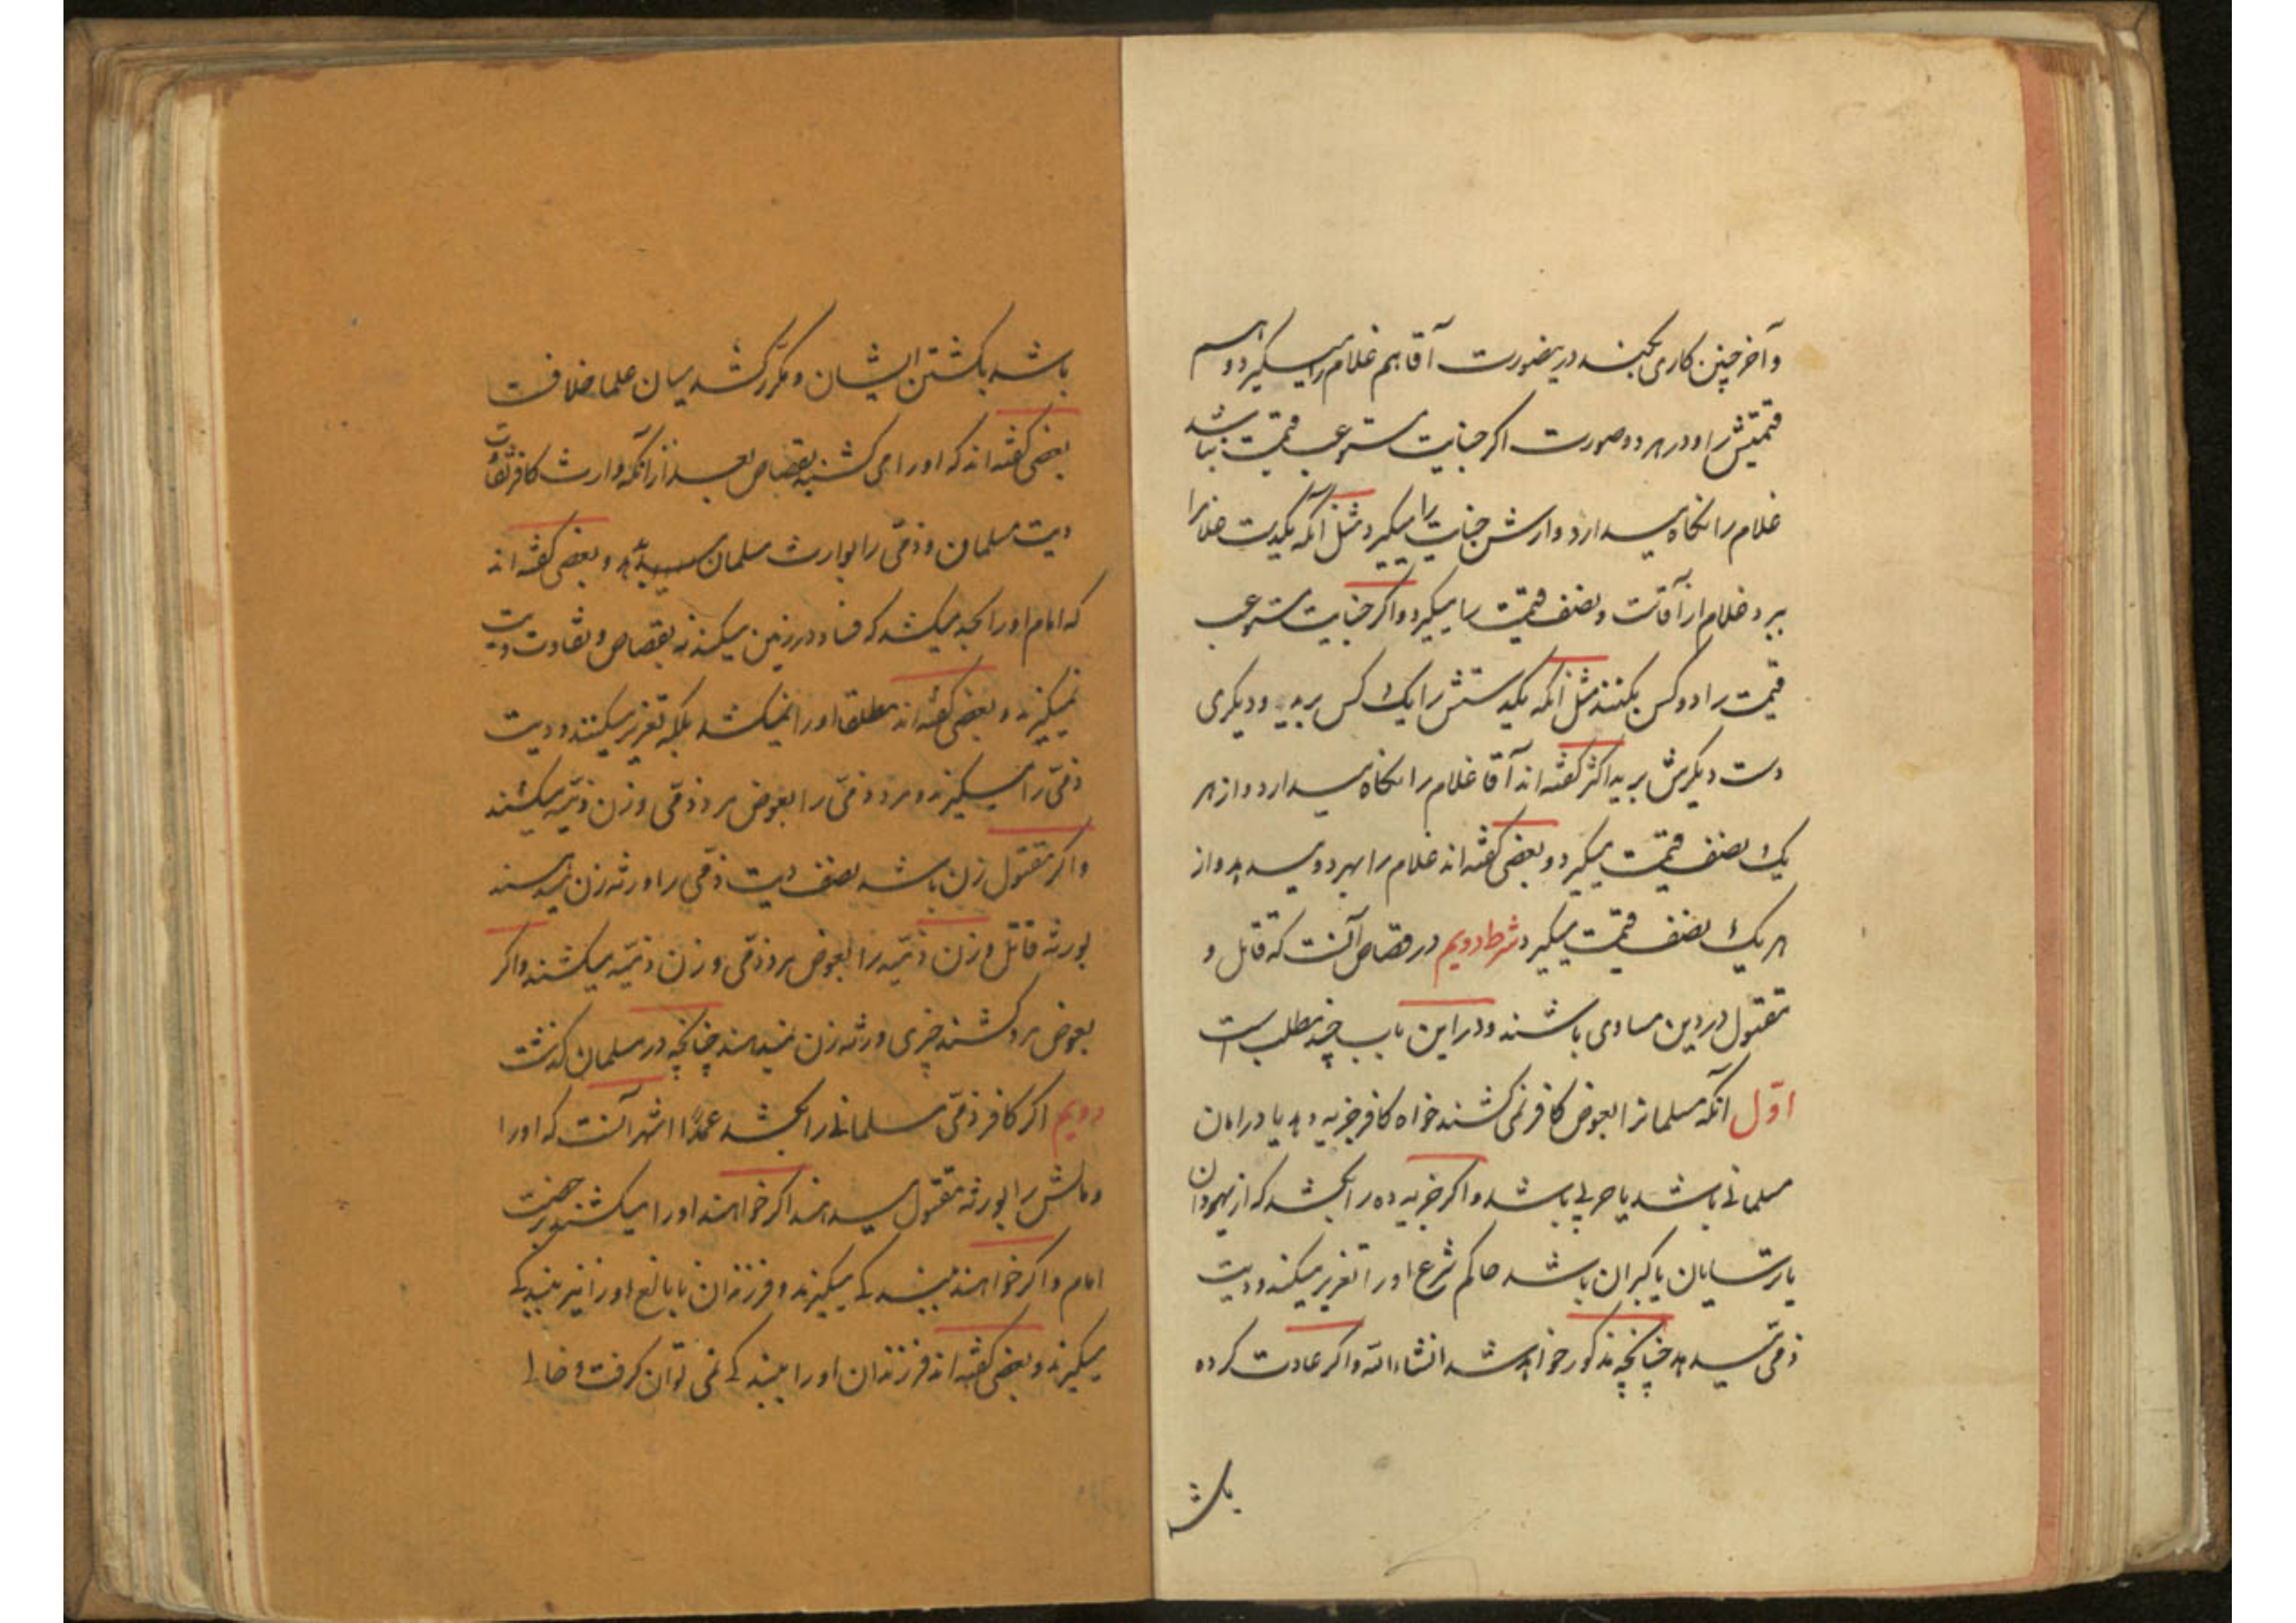 و آخر چنین کاری بکنند درینصورت آقا هم غلام را میگیرد و هم
قیمتش را و در هر دو صورت اگر جنایت مستوعب قیمت نباشد
غلام را نگاه میدارد و ارش جنایت را میگیرد مثل آنکه یکدست غلام را
ببرد غلام از آقاست و نصف قیمت را میگیرد و اگر جنایت مستوعب
قیمت را دو کس بکنند مثل آنکه یکدستش را یک کس ببرد و دیگری
دست دیگرش ببرید اکثر گفته‌اند آقا غلام را نگاه میدارد و از هر
یک نصف قیمت میگیرد و بعضی گفته‌اند غلام را بهر دو میدهد و از
هر یک نصف قیمت میگیرد شرط دویم در قصاص آنست که قاتل و
مقتول در دین مساوی باشند و در این باب چند مطلب است
اوّل آنکه مسلمانرا بعوض کافر نمی‌کشند خواه کافر جزیه دهد یا در امان
مسلمانی باشد یا حربی باشد و اگر جزیه ده را بکشد که از یهودان
یا ترسایان یا کبران باشد حاکم شرع او را تعزیر میکند و دیت
ذمّی میدهد چنانچه مذکور خواهد شد انشاءالله و اگر عادت کرده
باشد
باشد بکشتن ایشان و مکرّر کشد میان علما خلافست
بعضی گفته‌اند که او را می‌کشند بقصاص بعد از آنکه وارث کافر تفاوت
دیت مسلمان و ذمّی را بوارث مسلمان بدهد و بعضی گفته‌اند
که امام او را بحد میکشد که فساد در زمین میکند نه بقصاص و تفاوت دیت
نمیگیرند و بعضی گفته‌اند مطلقا او را نمیکشد بلکه تعزیر میکنند و دیت
ذمّی را میگیرند و مرد ذمّی را بعوض مرد ذمّی و زن ذمّیه میکشند
و اگر مقتول زن باشد نصف دیت ذمّی را ورثه زن میدهند
بورثه قاتل و زن ذمّیه را بعوض مرد ذمّی و زن ذمّیه میکشند و اگر
بعوض مرد کشند چیزی ورثه زن نمیدهند چنانچه در مسلمان گذشت
دویم اگر کافر ذمّی مسلمانی را بکشد عمدًا اشهر آنست که او را
و مالش را بورثه مقتول میدهند اگر خواهند او را میکشند برخصت
امام و اگر خواهند ببندگی میگیرند و فرزندان نابالغ او را نیز ببندگی
میگیرند و بعضی گفته‌اند فرزندان او را ببندگی نمی‌توان گرفت و خالی